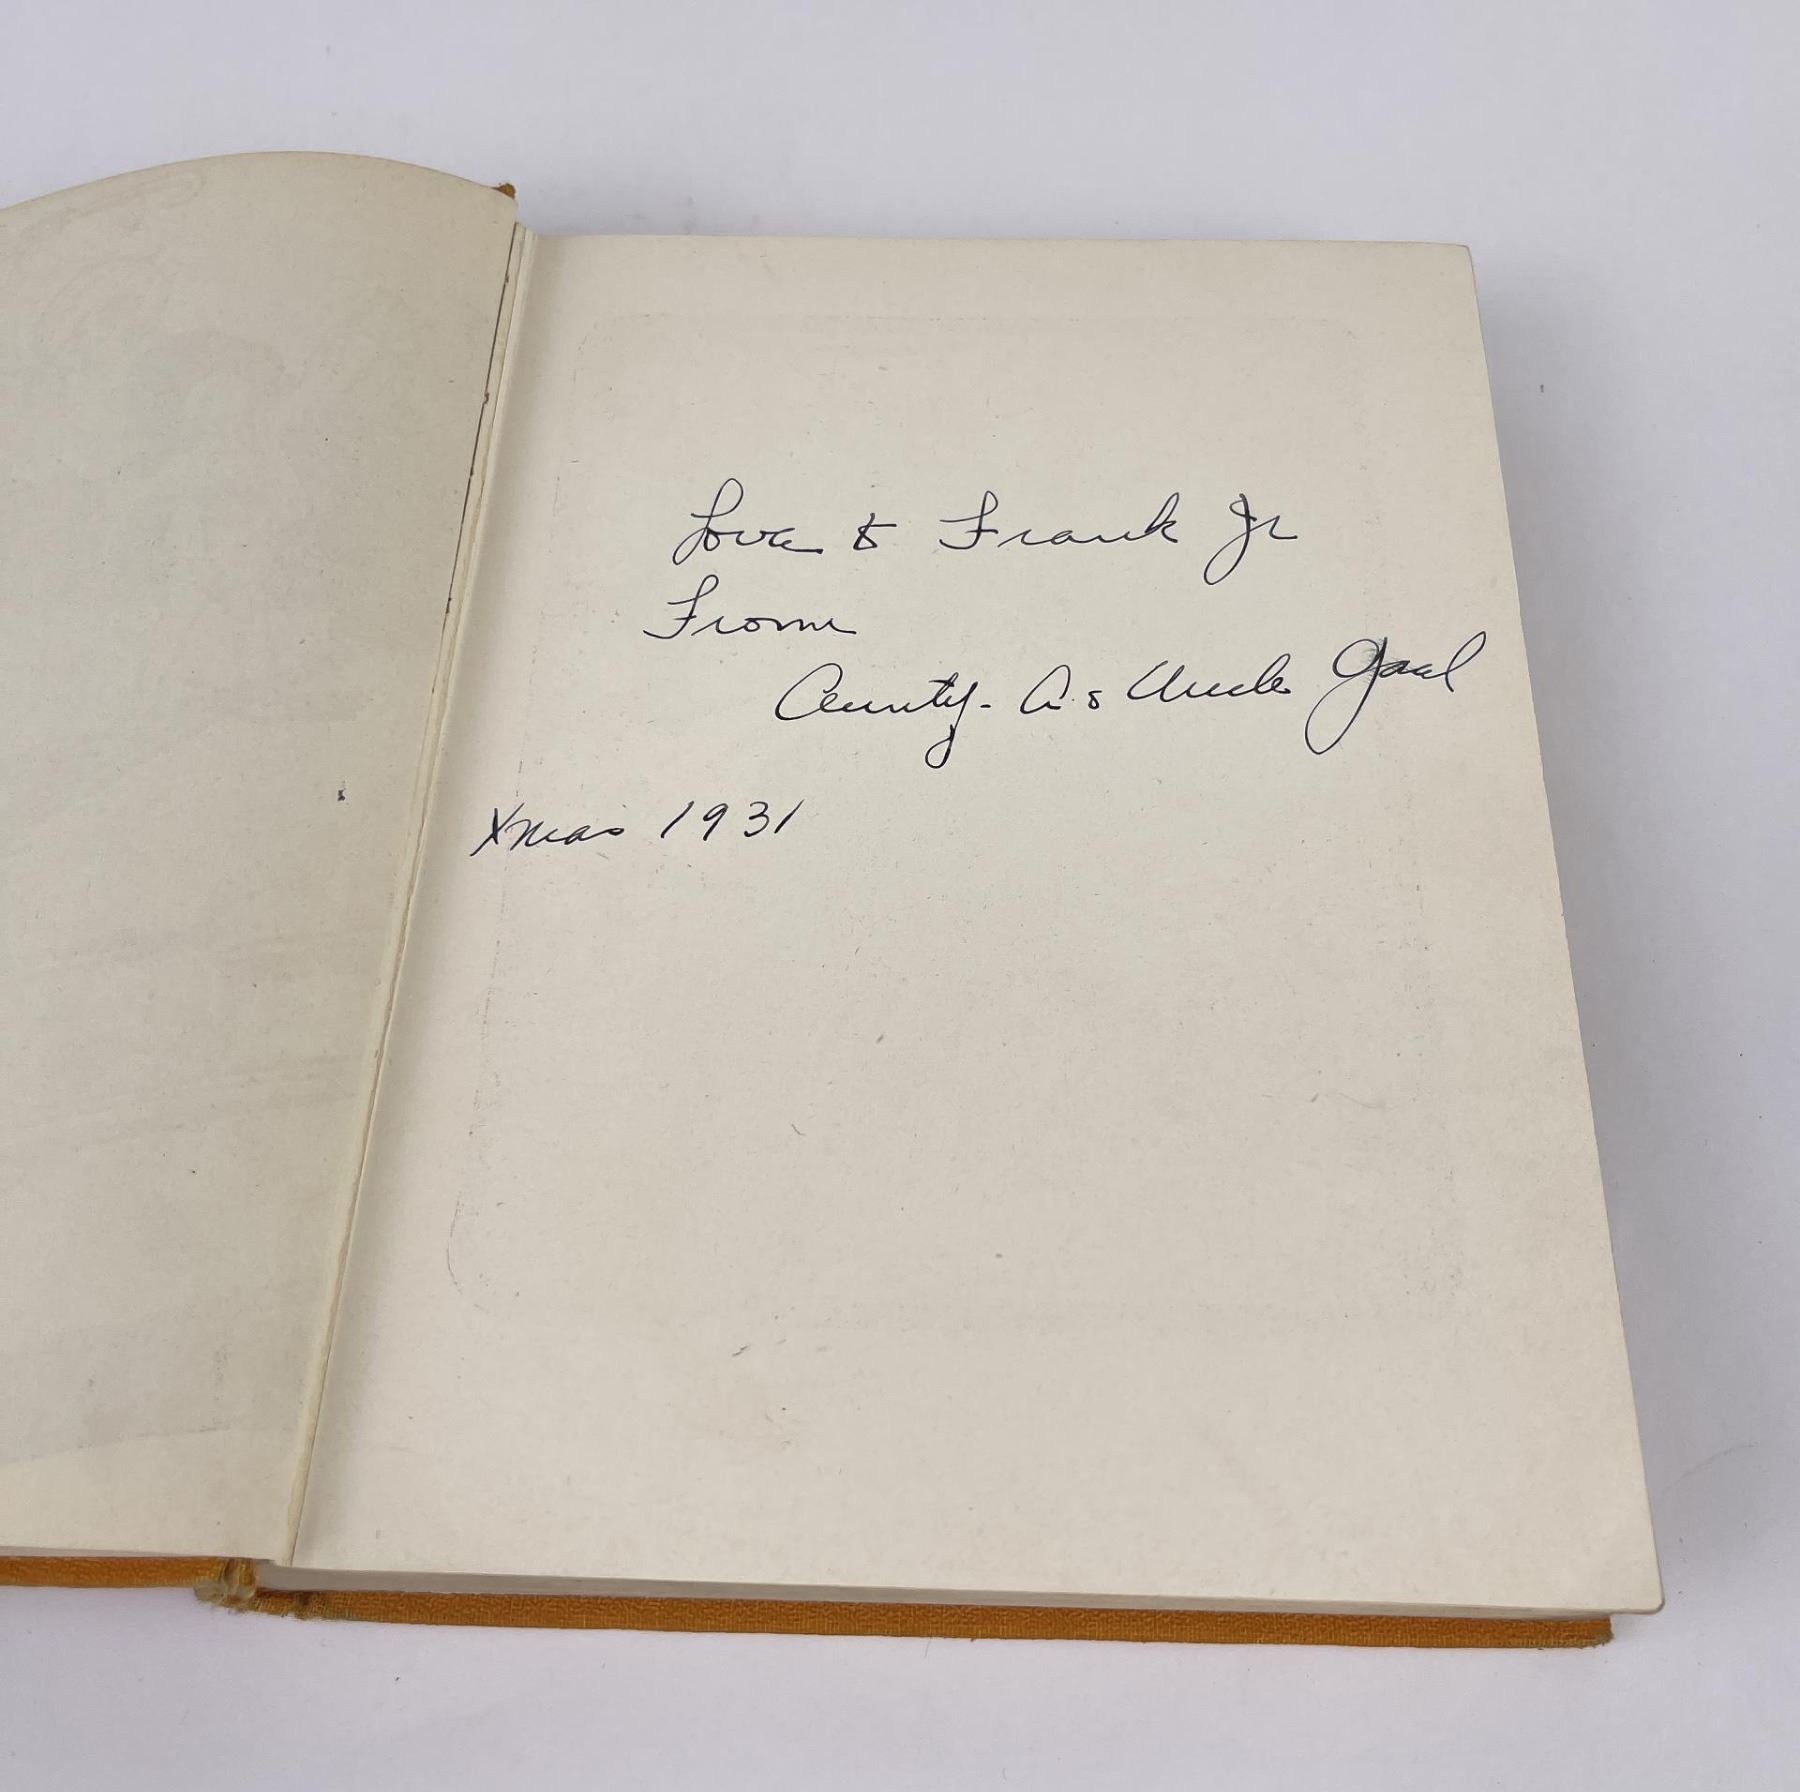 Love to Frank Jr
From
Aunty - A. & Uncle
Xmas 1931